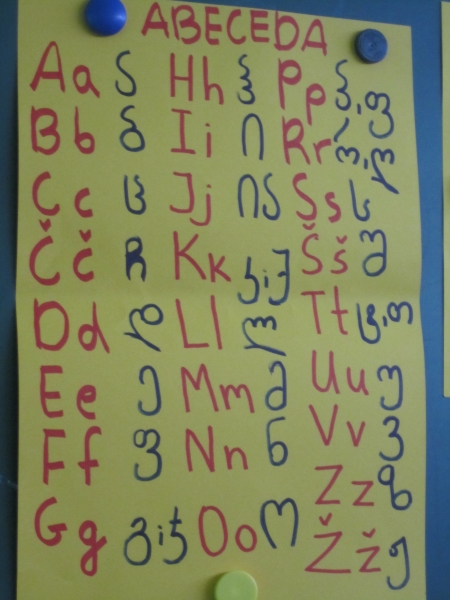 ABECEDA
Aa ა
Bb ბ
Cc ც
Čč ჩ
Dd დ
Ee ე
Ff ფ
Gg გ i
Hh ჰ
Ii ი
Jj ია
Kk კ i ქ
Ll ლ
Mm მ
Nn ნ
Oo ო
Pp პ i ფ
Rr რ
Ss ს
Šš შ
Tt ტ i თ
Uu უ
Vv ვ
Zz ზ
Žž ჟ